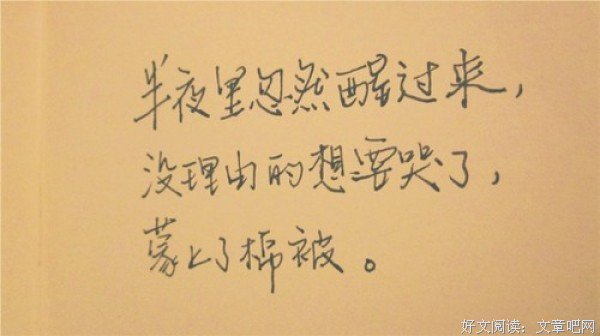 半夜里忽然醒过来，
没理由的想要哭了，
蒙上了棉被。
好文阅读：文章吧网